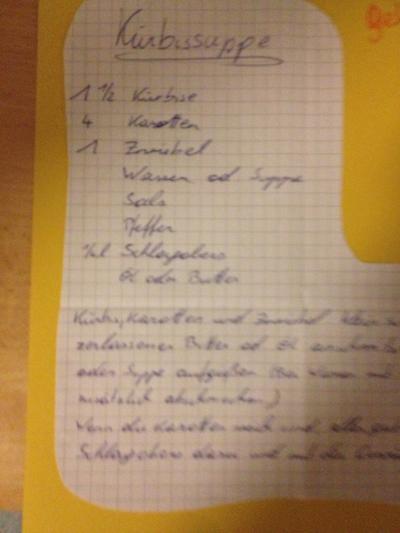 Kürbissuppe
1 1/2 Kürbise
4 Karotten
1 Zwiebel
Wasser od Suppe
Salz
Pfeffer
1/4 l Schlagobers
Öl oder Butter
Kürbis, Karotten und Zwiebel
zerlassener Butter od Öl
oder Suppe aufgießen (Bei Wasser mit
zusätzlich abschmecken)
Wenn die Karotten weich sind, alles
Schlagobers dazu und mit den